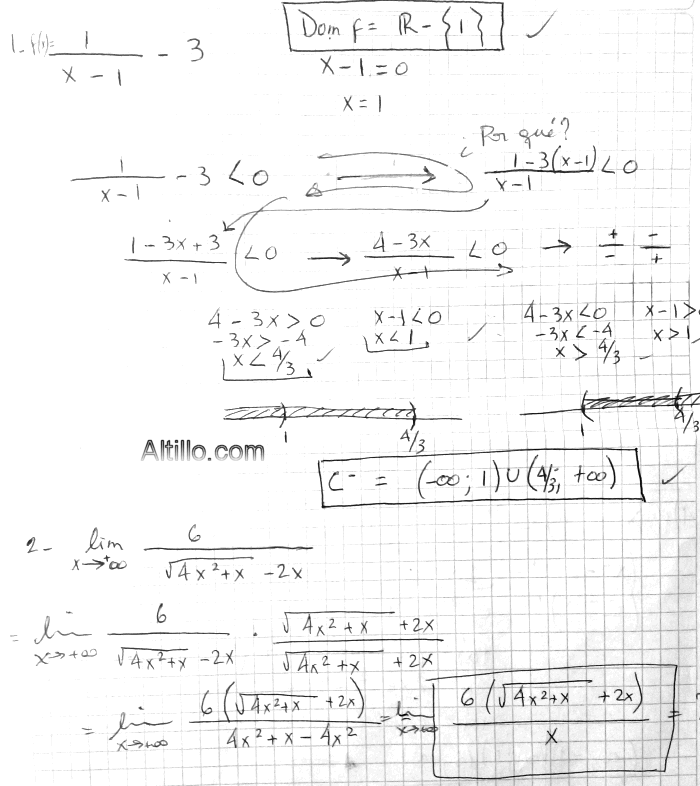 1- f(x)= 1/(x - 1) - 3
Dom f = ℝ - {1}
x - 1 = 0
x = 1
¿Por qué?
1/(x - 1) - 3 < 0 → (1 - 3(x - 1))/(x - 1) < 0
(1 - 3x + 3)/(x - 1) < 0 → (4 - 3x)/(x - 1) < 0 → +/- -/+
4 - 3x > 0 x - 1 < 0 4 - 3x < 0 x - 1 >
-3x > -4 x < 1 -3x < -4 x > 1
x < 4/3 x > 4/3
1 4/3 1 4/3
Altillo.com
C⁻ = (-∞; 1) ∪ (4/3; +∞)
2- lim x→+∞ 6/(√(4x²+x) - 2x)
= lim x→+∞ 6/(√(4x²+x) - 2x) · (√(4x²+x) + 2x)/(√(4x²+x) + 2x)
= lim x→+∞ 6(√(4x²+x) + 2x)/(4x² + x - 4x²) = lim x→+∞ 6(√(4x²+x) + 2x)/x =